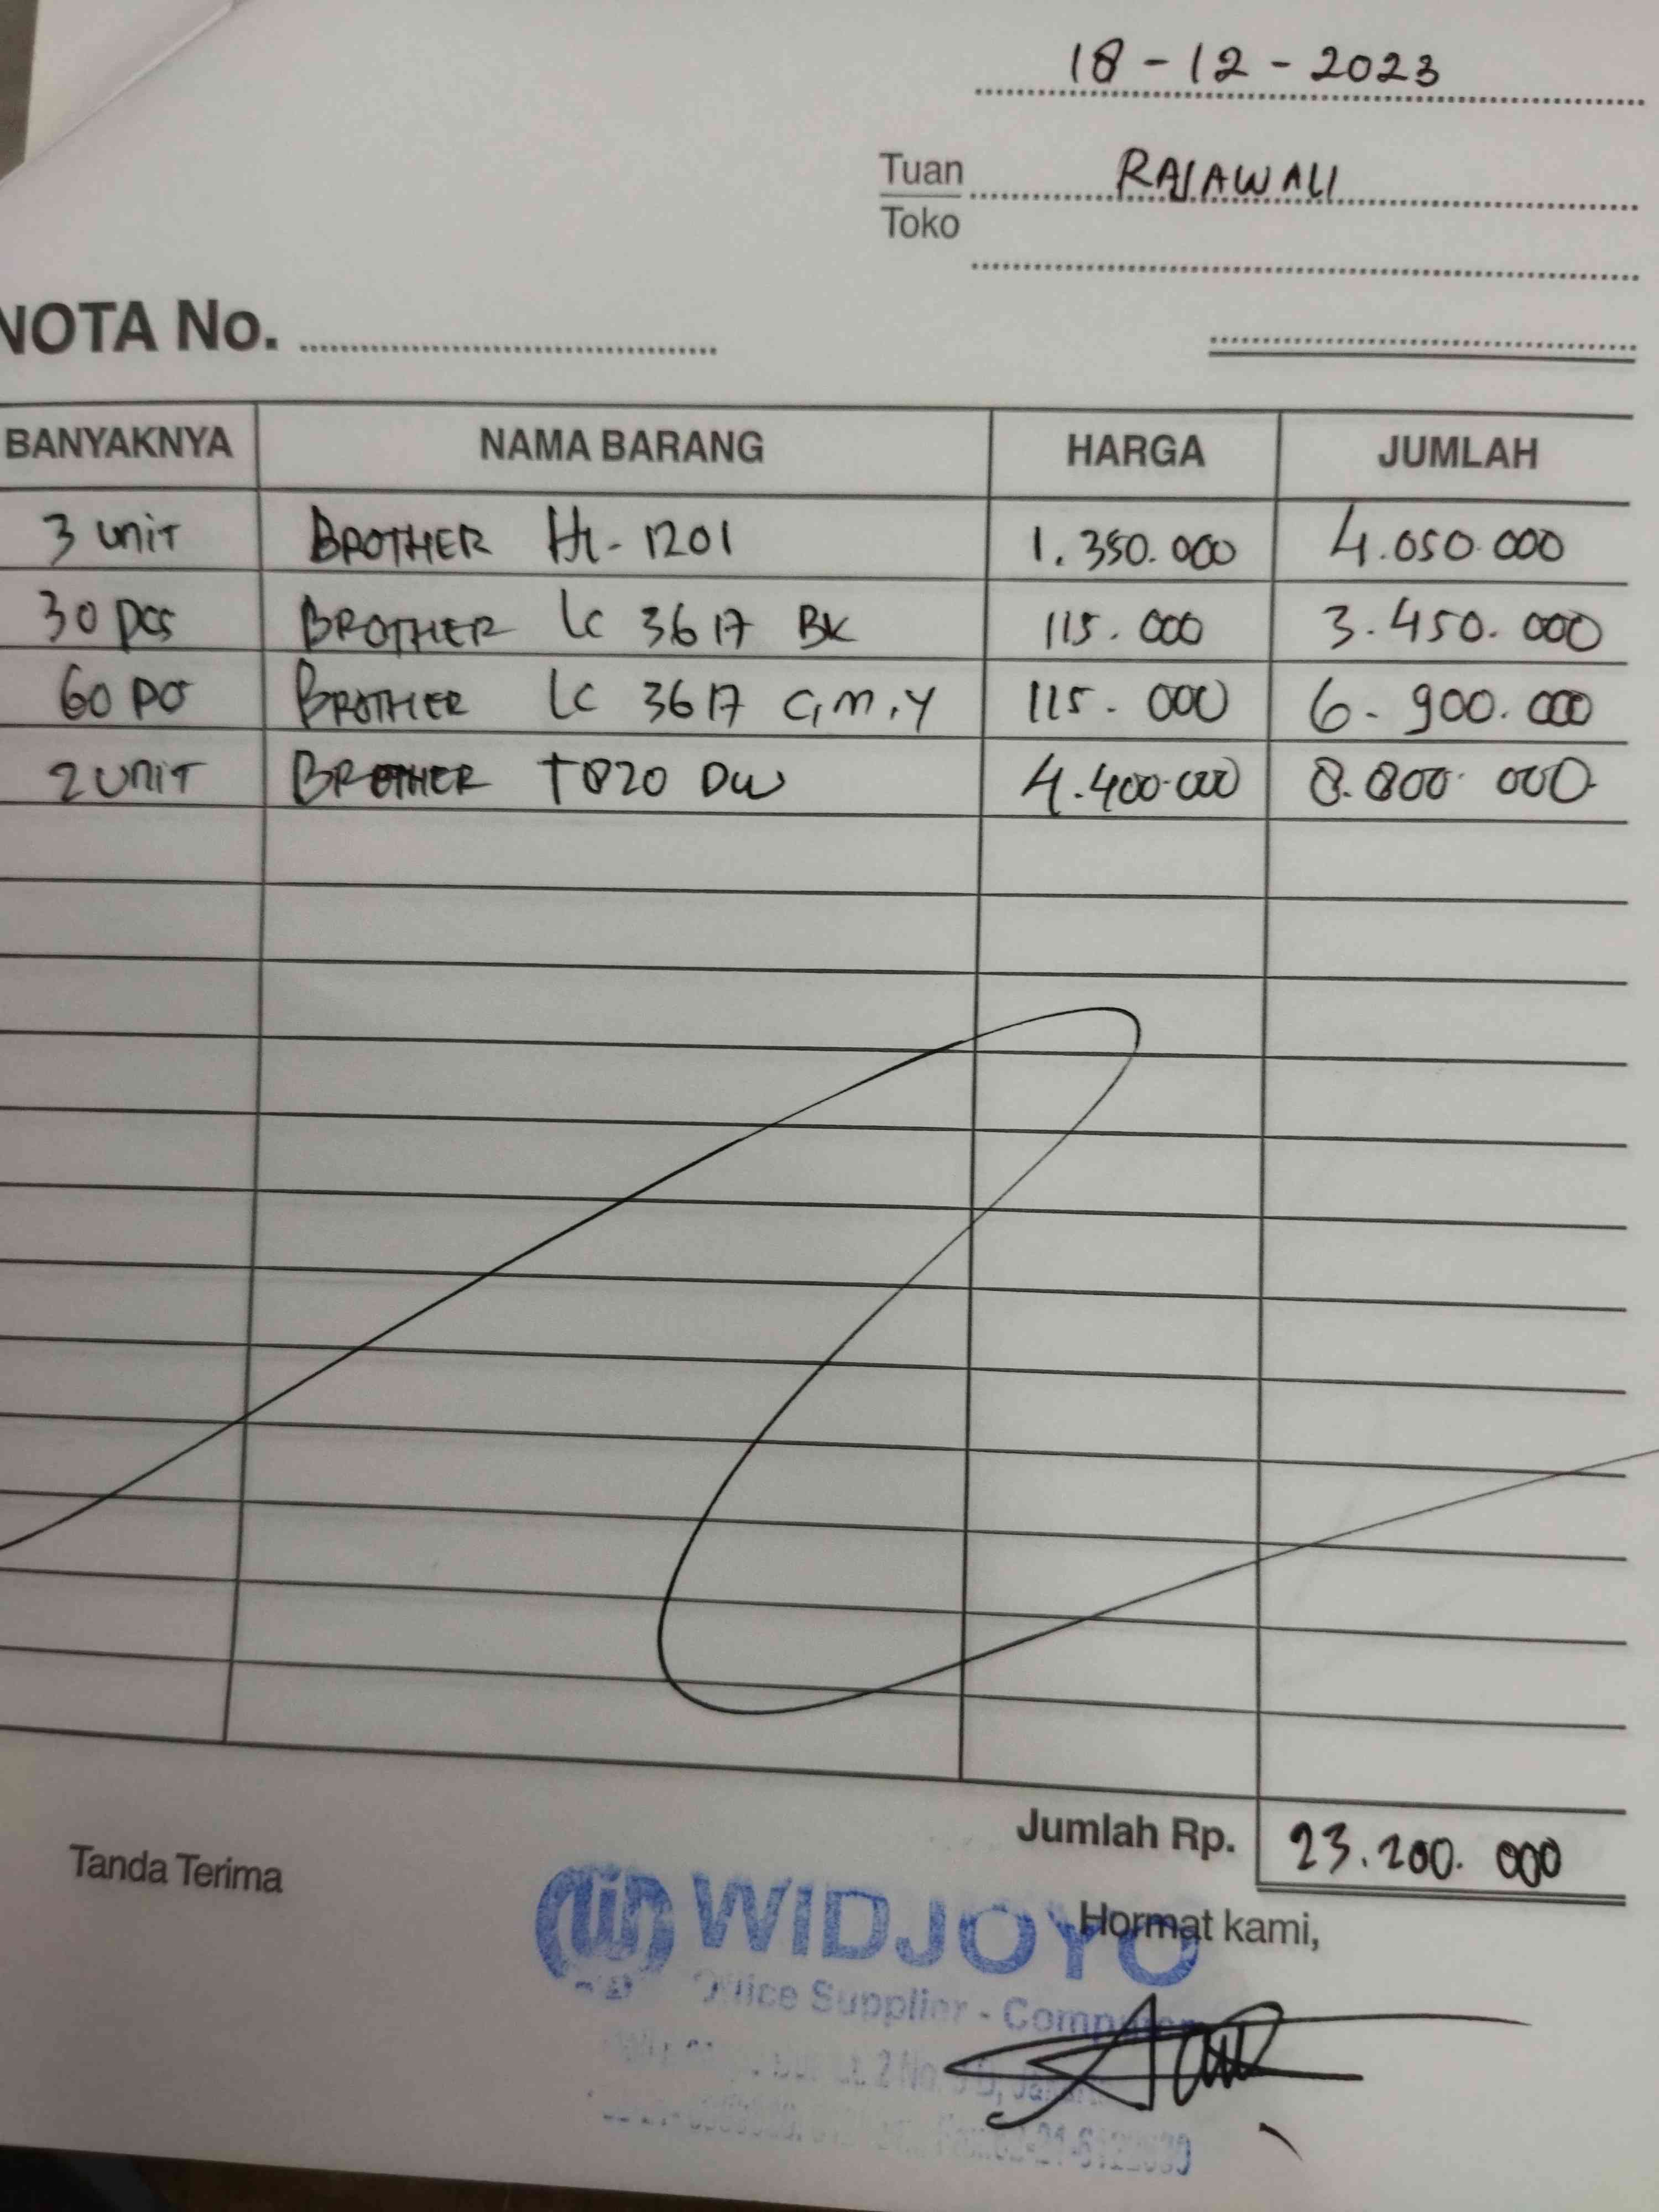 18 - 12 - 2023
Tuan RAJAWALI
Toko
NOTA No.
BANYAKNYA NAMA BARANG HARGA JUMLAH
3 unit BROTHER HL - 1201 1.350.000 4.050.000
30 pcs BROTHER LC 3617 BK 115.000 3.450.000
60 pcs BROTHER LC 3617 C,M,Y 115.000 6.900.000
2 UNIT BROTHER T820 DW 4.400.000 8.800.000
Jumlah Rp. 23.200.000
Tanda Terima
Hormat kami,
WIDJOYO
Office Supplier - Computer
Lt. 2 No.